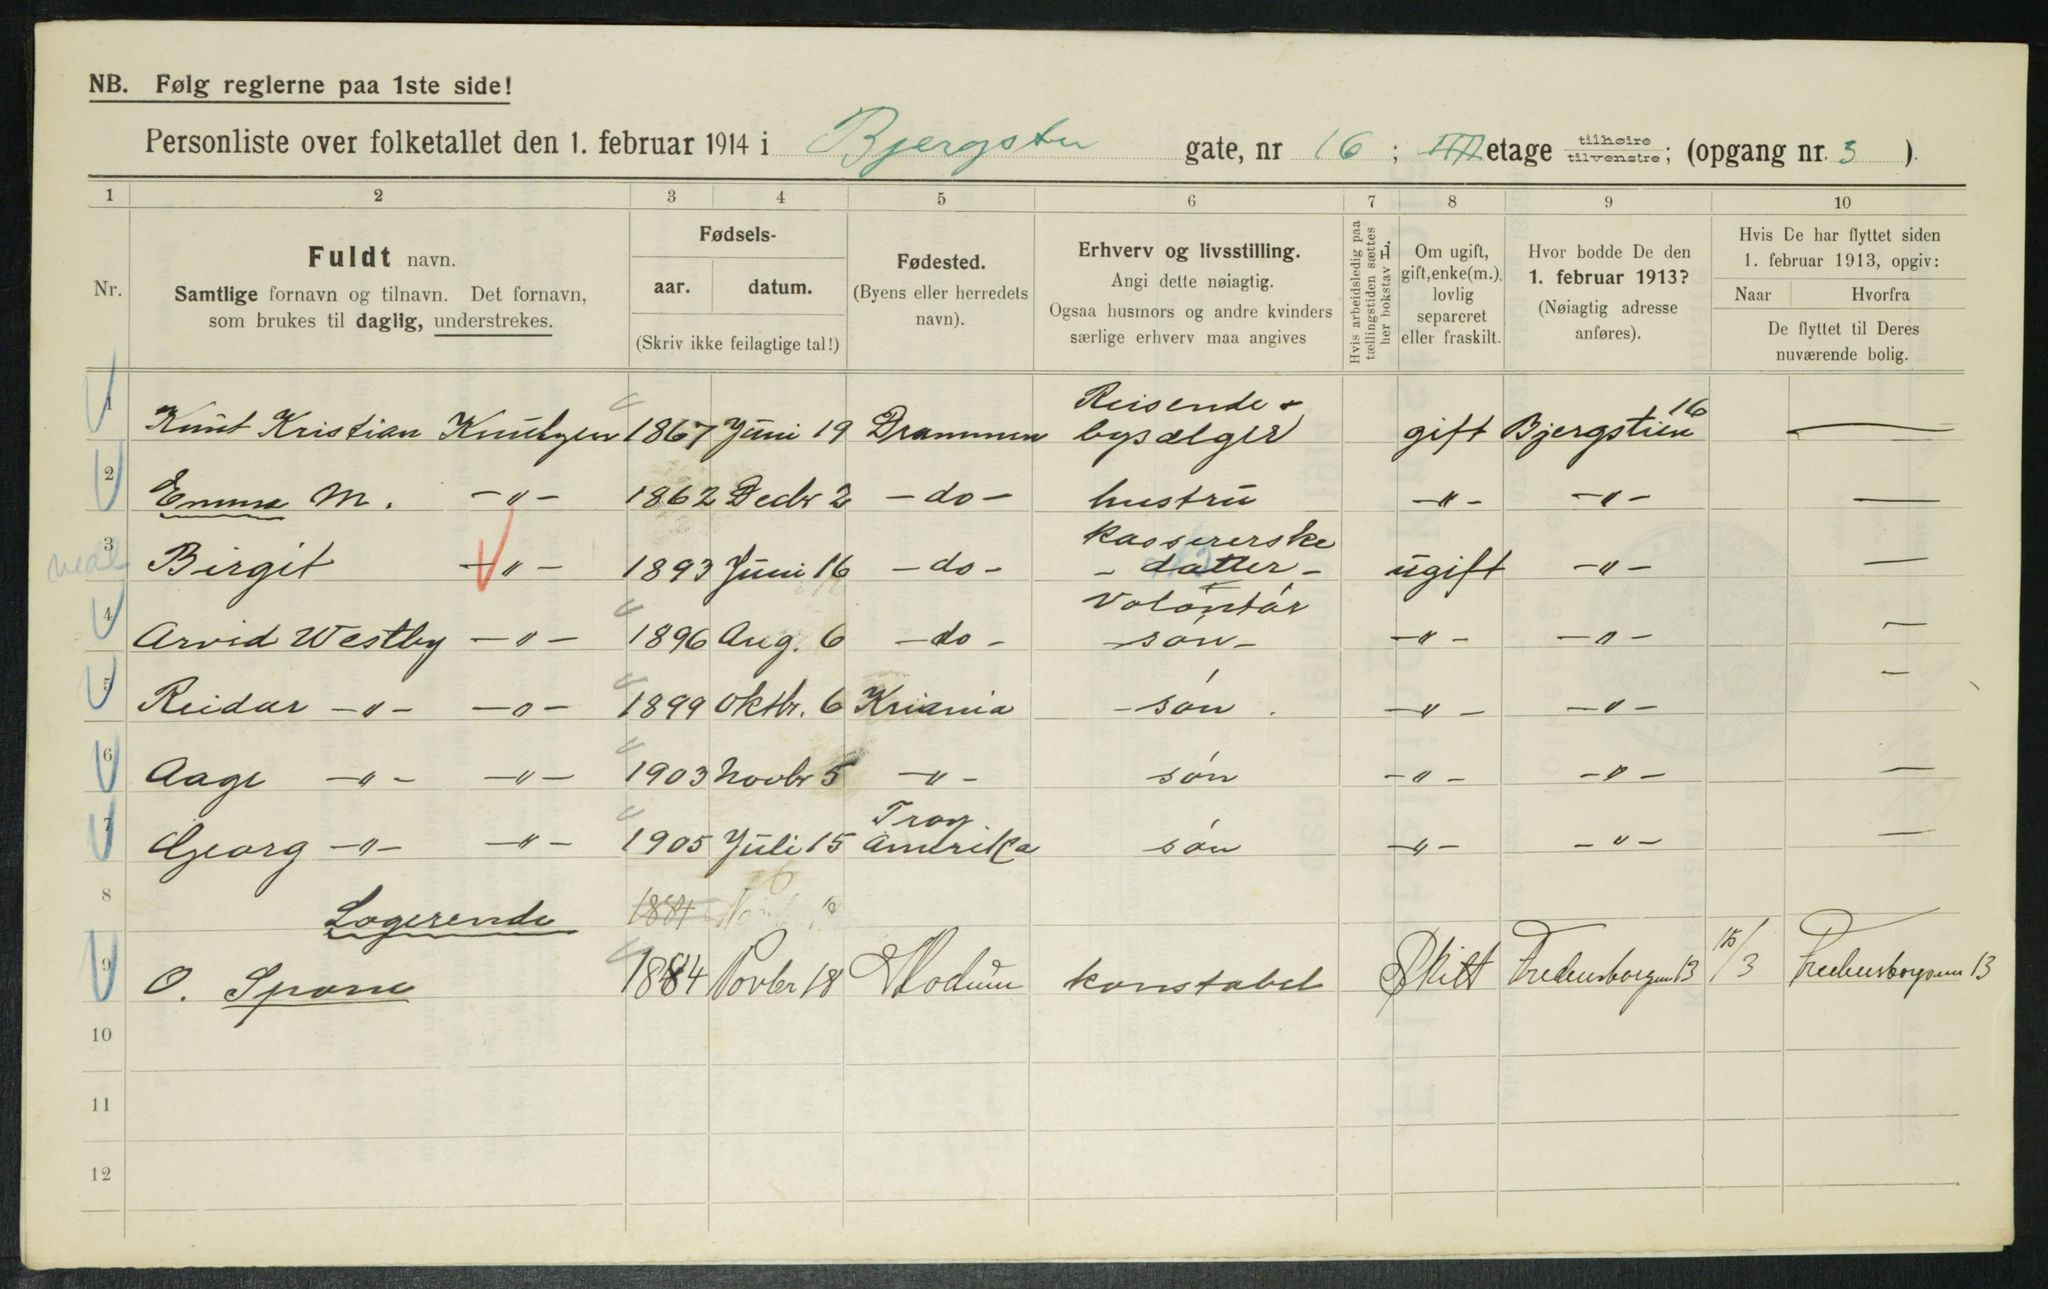 NB. Følg reglerne paa 1ste side!
Personliste over folketallet den 1. februar 1914 i Bjergstu gate, nr 16 ; III etage tilhøire tilvenstre ; (opgang nr. 3 ).
1 2 3 4 5 6 7 8 9 10
Nr.
Fuldt navn.
Samtlige fornavn og tilnavn. Det fornavn,
som brukes til daglig, understrekes.
Fødsels-
aar. datum.
(Skriv ikke feilagtige tal!)
Fødested.
(Byens eller herredets
navn).
Erhverv og livsstilling.
Angi dette nøiagtig.
Ogsaa husmors og andre kvinders
særlige erhverv maa angives
Hvis arbeidsledig paa
tællingstiden sættes
her bokstav l.
Om ugift,
gift, enke(m.),
lovlig
separeret
eller fraskilt.
Hvor bodde De den
1. februar 1913?
(Nøiagtig adresse
anføres).
Hvis De har flyttet siden
1. februar 1913, opgiv:
Naar Hvorfra
De flyttet til Deres
nuværende bolig.
1 Knut Kristian Knutzen 1867 Juni 19 Drammen Reisende + bysælger gift Bjergstien 16 —
2 Emma M. -"- 1862 Decbr 2 -do- hustru -"- -"- —
3 Birgit -"- 1893 Juni 16 -do- kassererske - datter - ugift -"- —
4 Arvid Westby -"- 1896 Aug. 6 -do- Volontár - són - -"- -"- —
5 Reidar -"- -"- 1899 Oktbr. 6 Kriania - són -"- -"- —
6 Aage -"- -"- 1903 Novbr 5 -"- són -"- -"- —
7 Georg -"- -"- 1905 Juli 15 Troy Amerika són -"- -"- —
8 Logerende 1884
9 O. Spone 1884 Novbr 18 Modum konstabel Skilt Fredensborgvn 13 15/3 Fredensborgveien 13
10
11
12